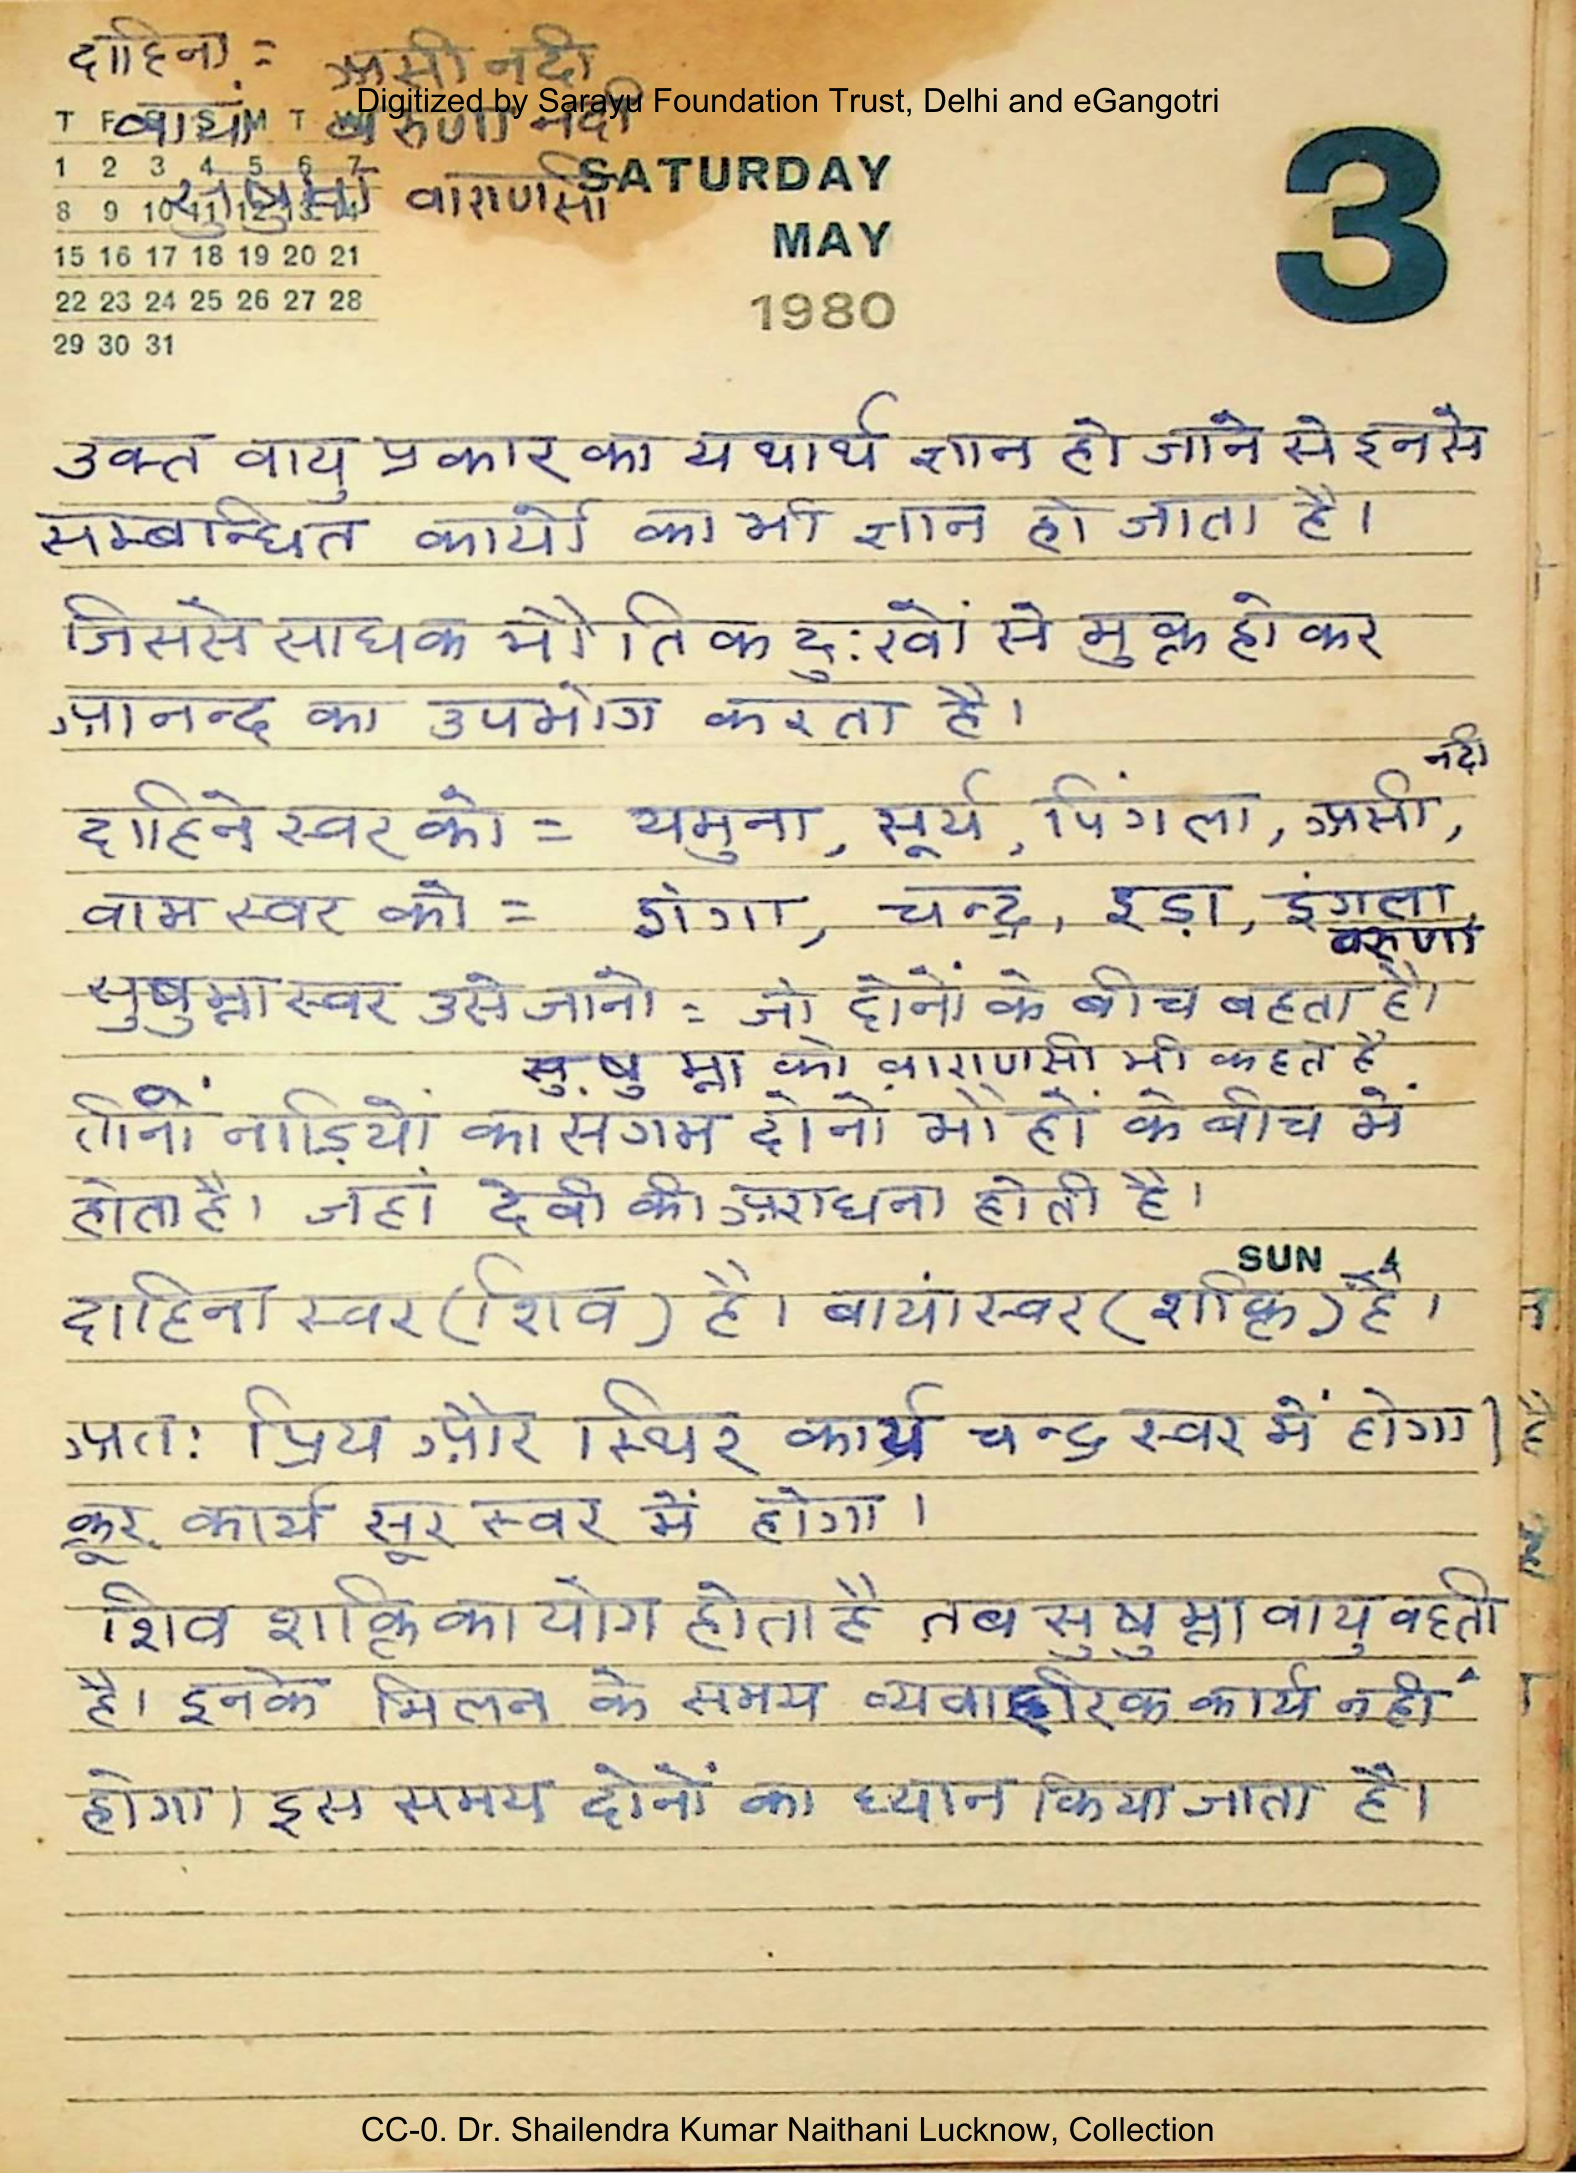 दाहिना = असी नदी
Digitized by Sarayu Foundation Trust, Delhi and eGangotri
बायां वरुणा नदी
सुषुम्ना वाराणसी
T F S S M T W
1 2 3 4 5 6 7
8 9 10 11 12 13 14
15 16 17 18 19 20 21
22 23 24 25 26 27 28
29 30 31
SATURDAY
MAY
1980
3
उक्त वायु प्रकार का यथार्थ ज्ञान हो जाने से इनसे
सम्बन्धित कार्यो का भी ज्ञान हो जाता है।
जिससे साधक भौतिक दु:खों से मुक्त होकर
आनन्द का उपभोग करता है।
नदी
दाहिने स्वर को = यमुना, सूर्य, पिंगला, असी,
वाम स्वर को = गंगा, चन्द्र, इड़ा, इंगला,
वरुणा
सुषुम्ना स्वर उसे जानो = जो दोनों के बीच बहता है।
सुषुम्ना को वाराणसी भी कहते है
तीनों नाड़ियों का संगम दोनों भौहों के बीच में
होता है। जहां देवी की अराधना होती है।
SUN 4
दाहिना स्वर (शिव) है। बायां स्वर (शक्ति) है।
अत: प्रिय और स्थिर कार्य चन्द्र स्वर में होगा।
क्रूर कार्य सूर स्वर में होगा।
शिव शक्ति का योग होता है तब सुषुम्ना वायु वहती
है। इनके मिलन के समय व्यवाहरिक कार्य नहीं
होगा। इस समय दोनों का ध्यान किया जाता है।
CC-0. Dr. Shailendra Kumar Naithani Lucknow, Collection